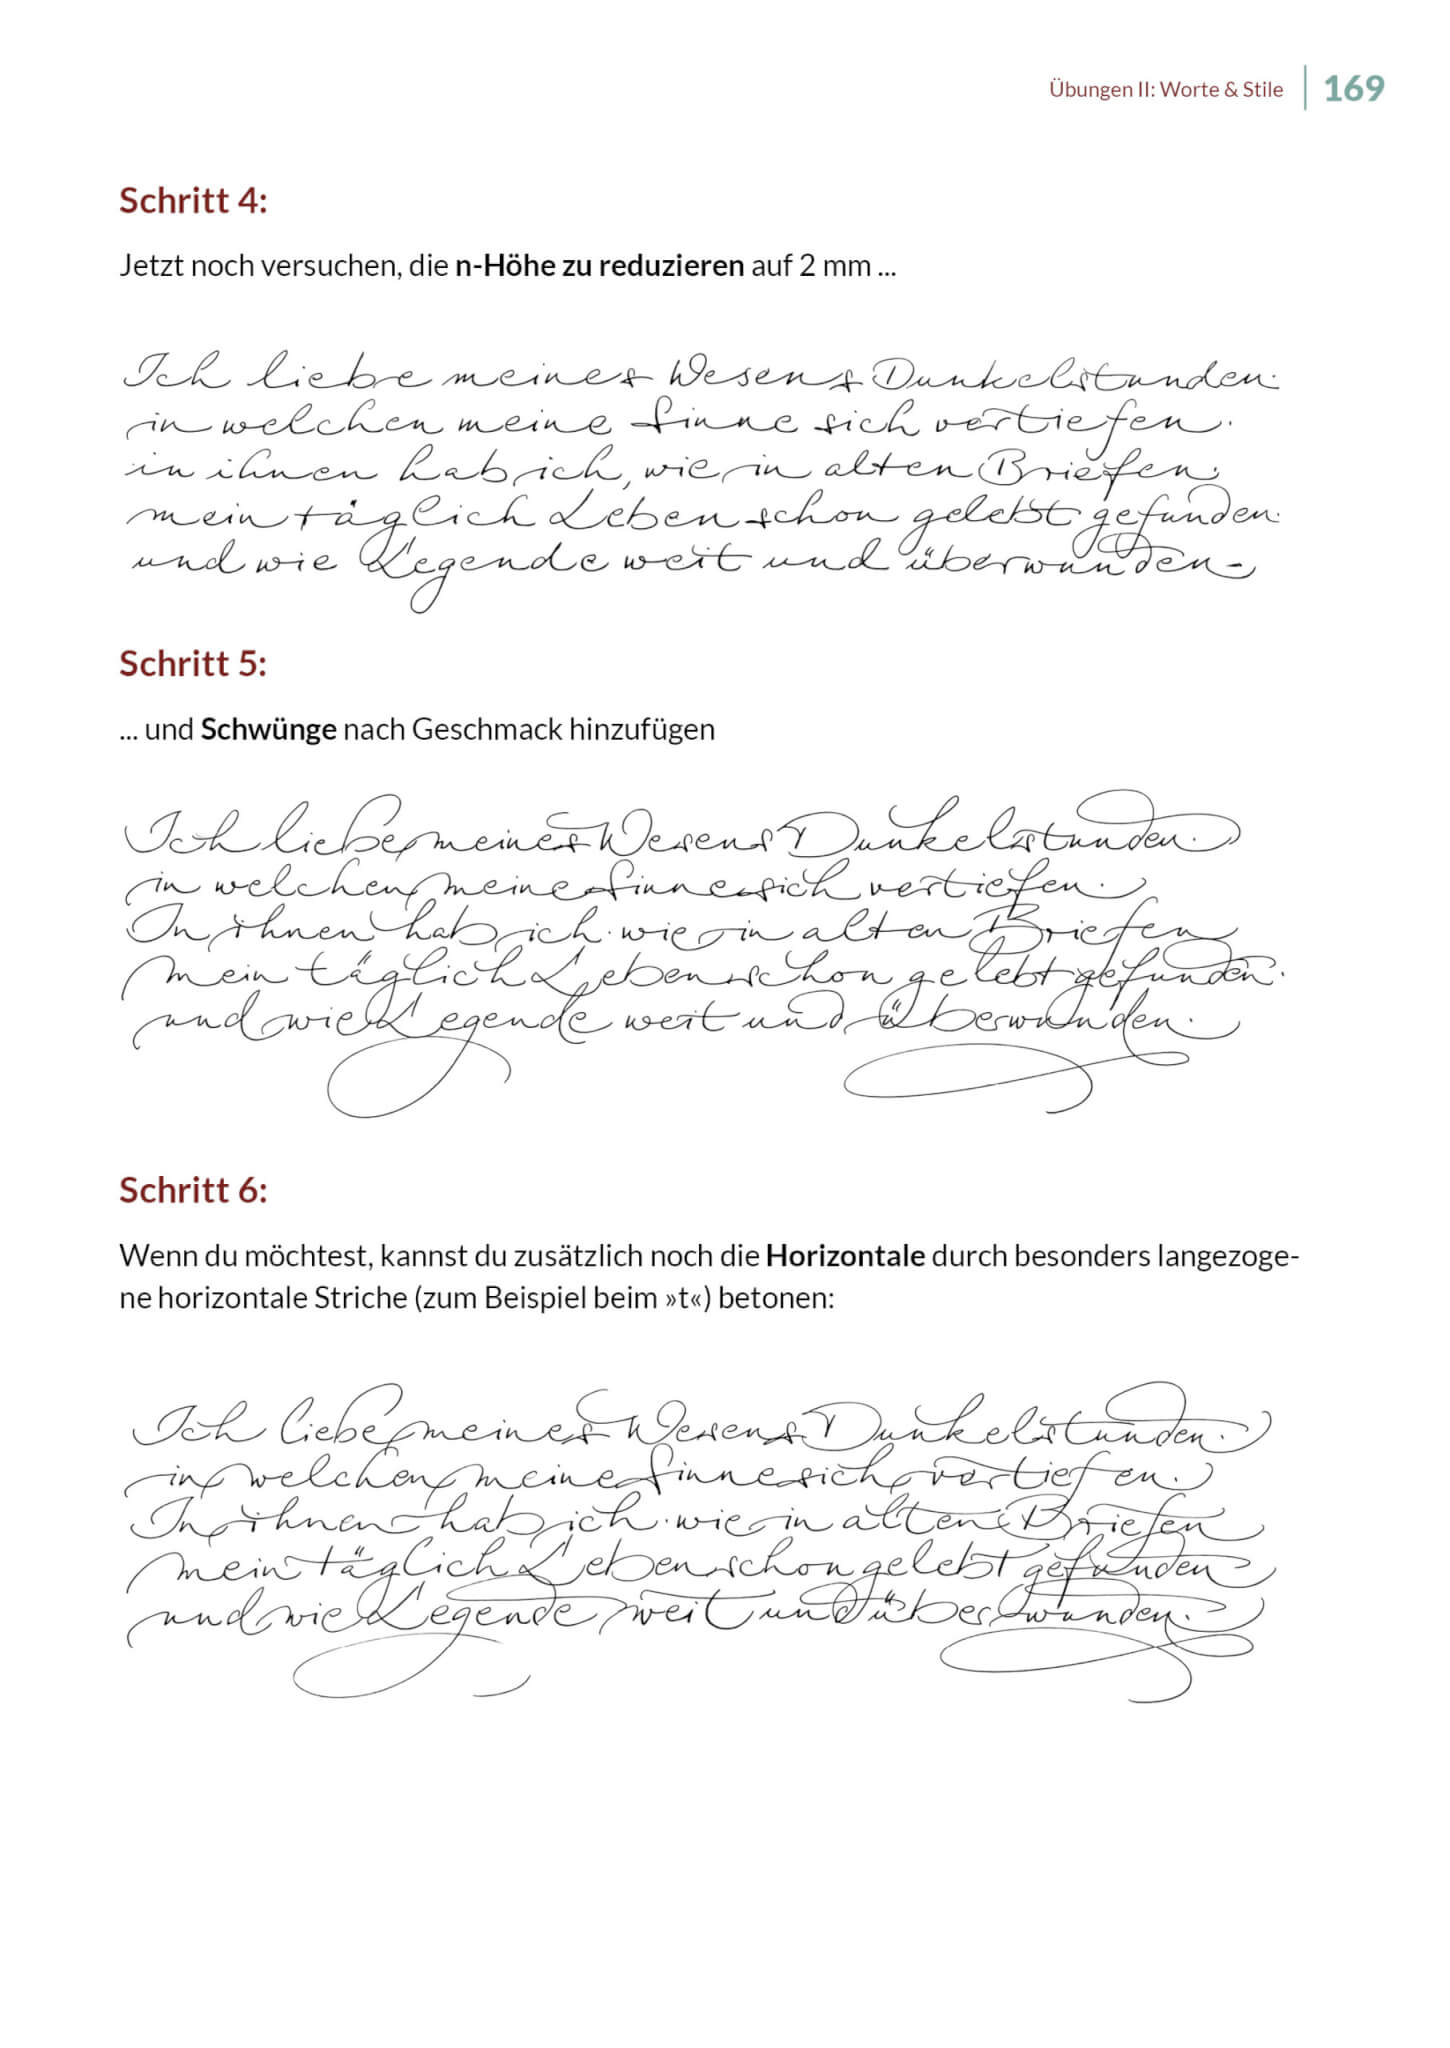 Übungen II: Worte & Stile | 169
Schritt 4:
Jetzt noch versuchen, die n-Höhe zu reduzieren auf 2 mm ...
Ich liebe meines Wesens Dunkelstunden.
in welchen meine Sinne sich vertiefen.
in ihnen hab ich, wie in alten Briefen,
mein täglich Leben schon gelebt gefunden.
und wie Legende weit und überwunden-
Schritt 5:
... und Schwünge nach Geschmack hinzufügen
Ich liebe meines Wesens Dunkelstunden.
in welchen meine Sinne sich vertiefen.
In ihnen hab ich. wie in alten Briefen
mein täglich Leben schon gelebt gefunden.
und wie Legende weit und überwunden.
Schritt 6:
Wenn du möchtest, kannst du zusätzlich noch die Horizontale durch besonders langezoge-
ne horizontale Striche (zum Beispiel beim »t«) betonen:
Ich liebe meines Wesens Dunkelstunden.
in welchen meine Sinne sich vertiefen.
In ihnen hab ich. wie in alten Briefen
mein täglich Leben schon gelebt gefunden
und wie Legende weit und überwunden.